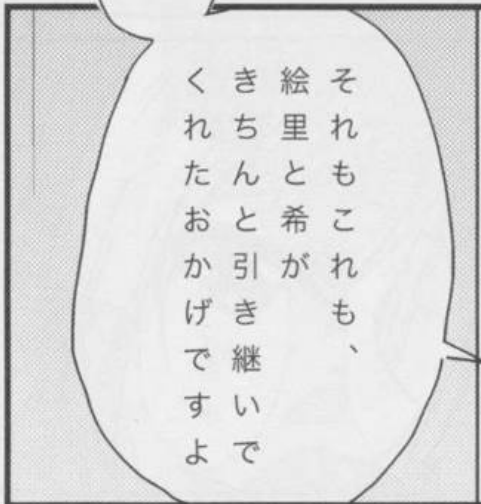 それもこれも、
絵里と希が
きちんと引き継いで
くれたおかげですよ